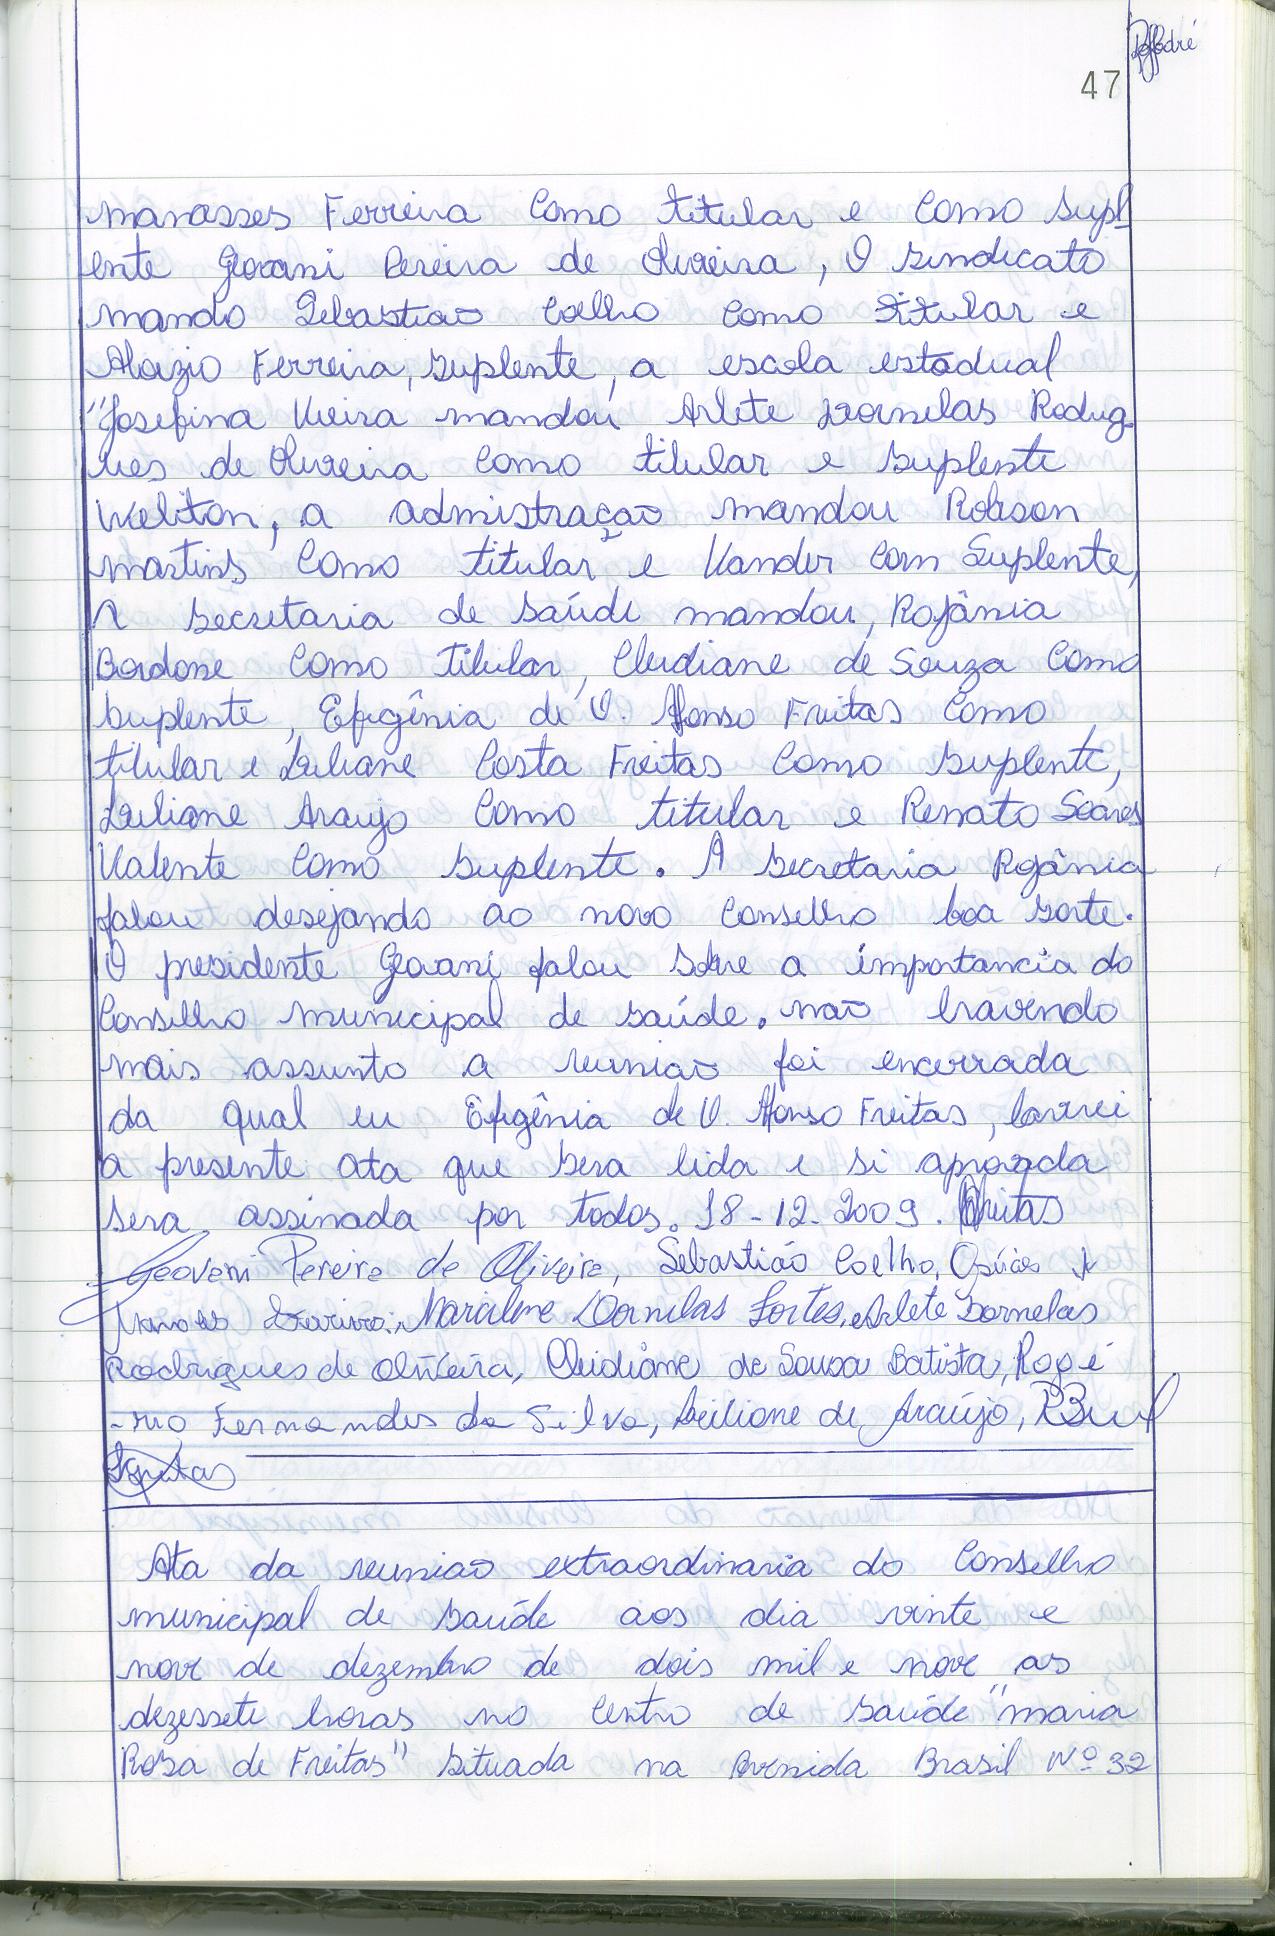 47
manasses Ferreira Como titular e Como supl
ente Geovani Pereira de Oliveira, O sindicato
mando Sebastiao Coelho Como titular e
Aloizio Ferreira, suplente, a escola estadual
"Josefina Vieira mandou Arlete Dornelas Rodug
ues de Oliveira Como titular e suplente
Weliton, a admistração mandou Robson
martins Como titular e Vander Com Suplente,
A secretaria de saúde mandou, Rogânia
Bordone Como titular, Cleudiane de Souza Como
suplente, Efigênia de O. Afonso Freitas Como
titular e Juliane Costa Freitas Como suplente,
Juliane Araujo Como titular e Renato Soares
Valente Como suplente. A secretaria Rogânia
falou desejando ao novo Conselho boa sorte.
O presidente Geovani falou sobre a importancia do
Conselho municipal de saúde. não havendo
mais assunto a reuniao foi encerrada
da qual eu Efigênia de O. Afonso Freitas, lavrei
a presente ata que sera lida e si aprovada
sera assinada por todos. 18-12-2009. Freitas
Geovani Pereira de Oliveira, Sebastião Coelho,
Marilene Dornelas Fortes, Arlete Dornelas
Rodrigues de Oliveira, Cleidiane de Sousa Batista, Rogé
-rio Fernandes da Silva, de Araújo,
Freitas
Ata da reuniao extraordinaria do Conselho
municipal de saúde aos dia vinte e
nove de dezembro de dois mil e nove as
dezessete horas no Centro de saúde "maria
Rosa de Freitas" situada na Avenida Brasil Nº 32